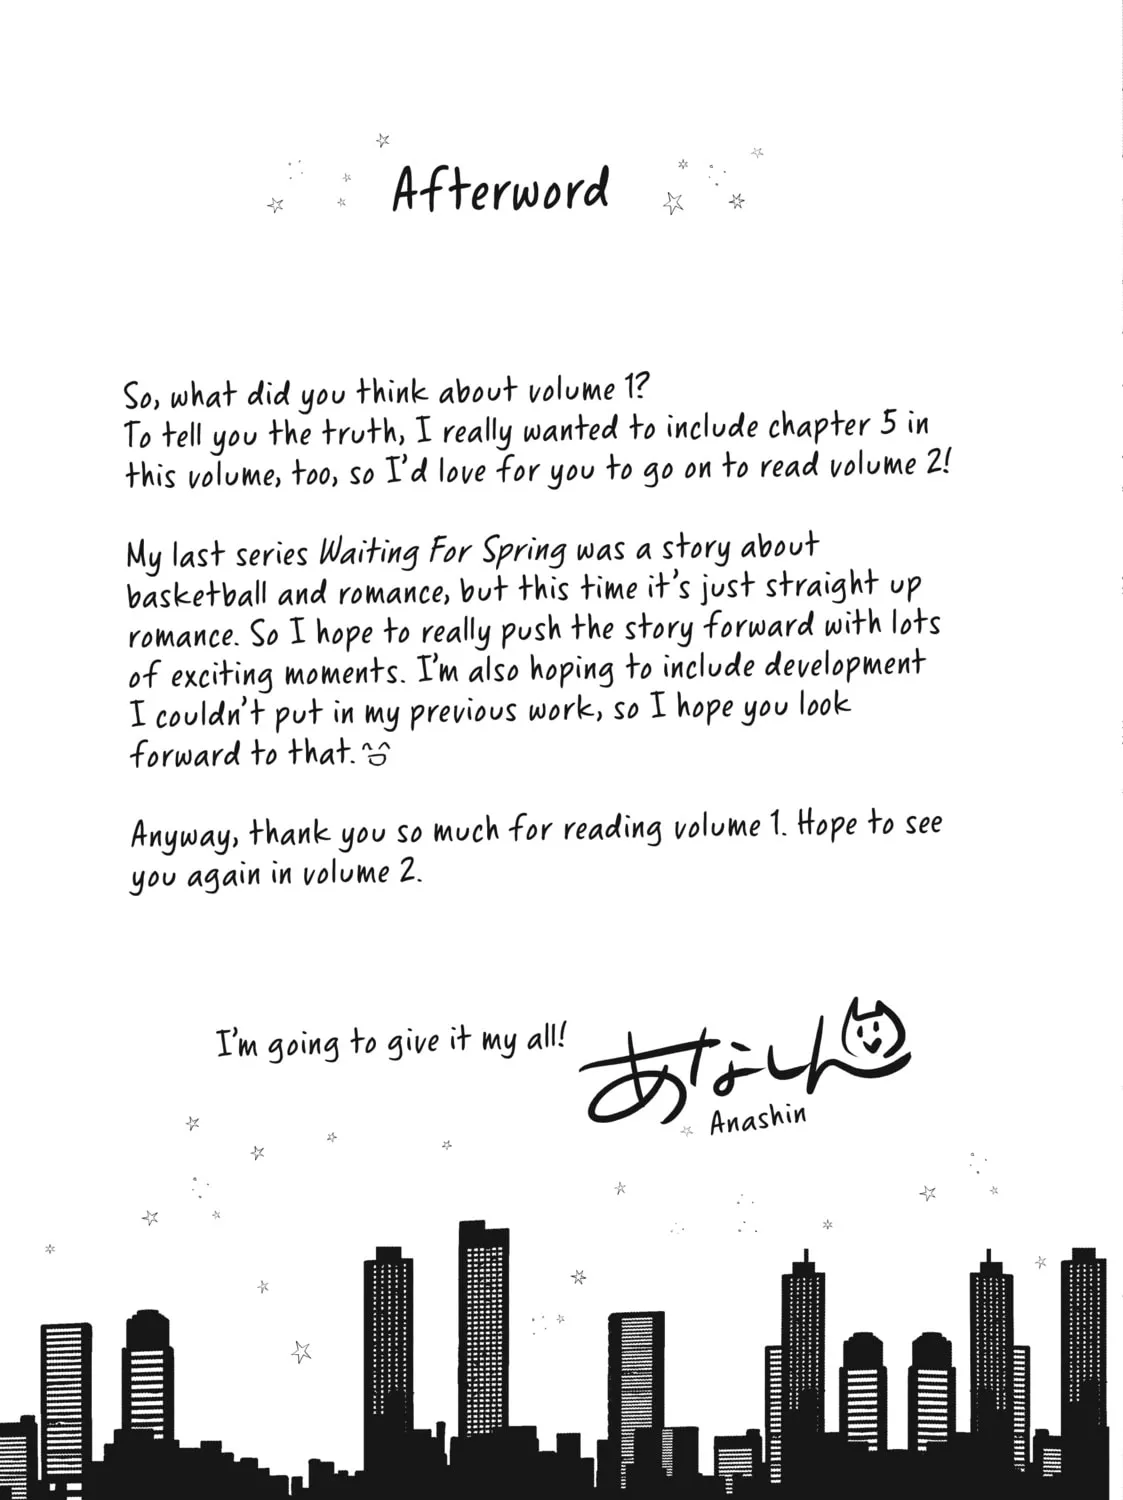 Afterword
So, what did you think about volume 1?
To tell you the truth, I really wanted to include chapter 5 in
this volume, too, so I'd love for you to go on to read volume 2!
My last series Waiting For Spring was a story about
basketball and romance, but this time it's just straight up
romance. So I hope to really push the story forward with lots
of exciting moments. I'm also hoping to include development
I couldn't put in my previous work, so I hope you look
forward to that.
Anyway, thank you so much for reading volume 1. Hope to see
you again in volume 2.
I'm going to give it my all!
あなしん
Anashin